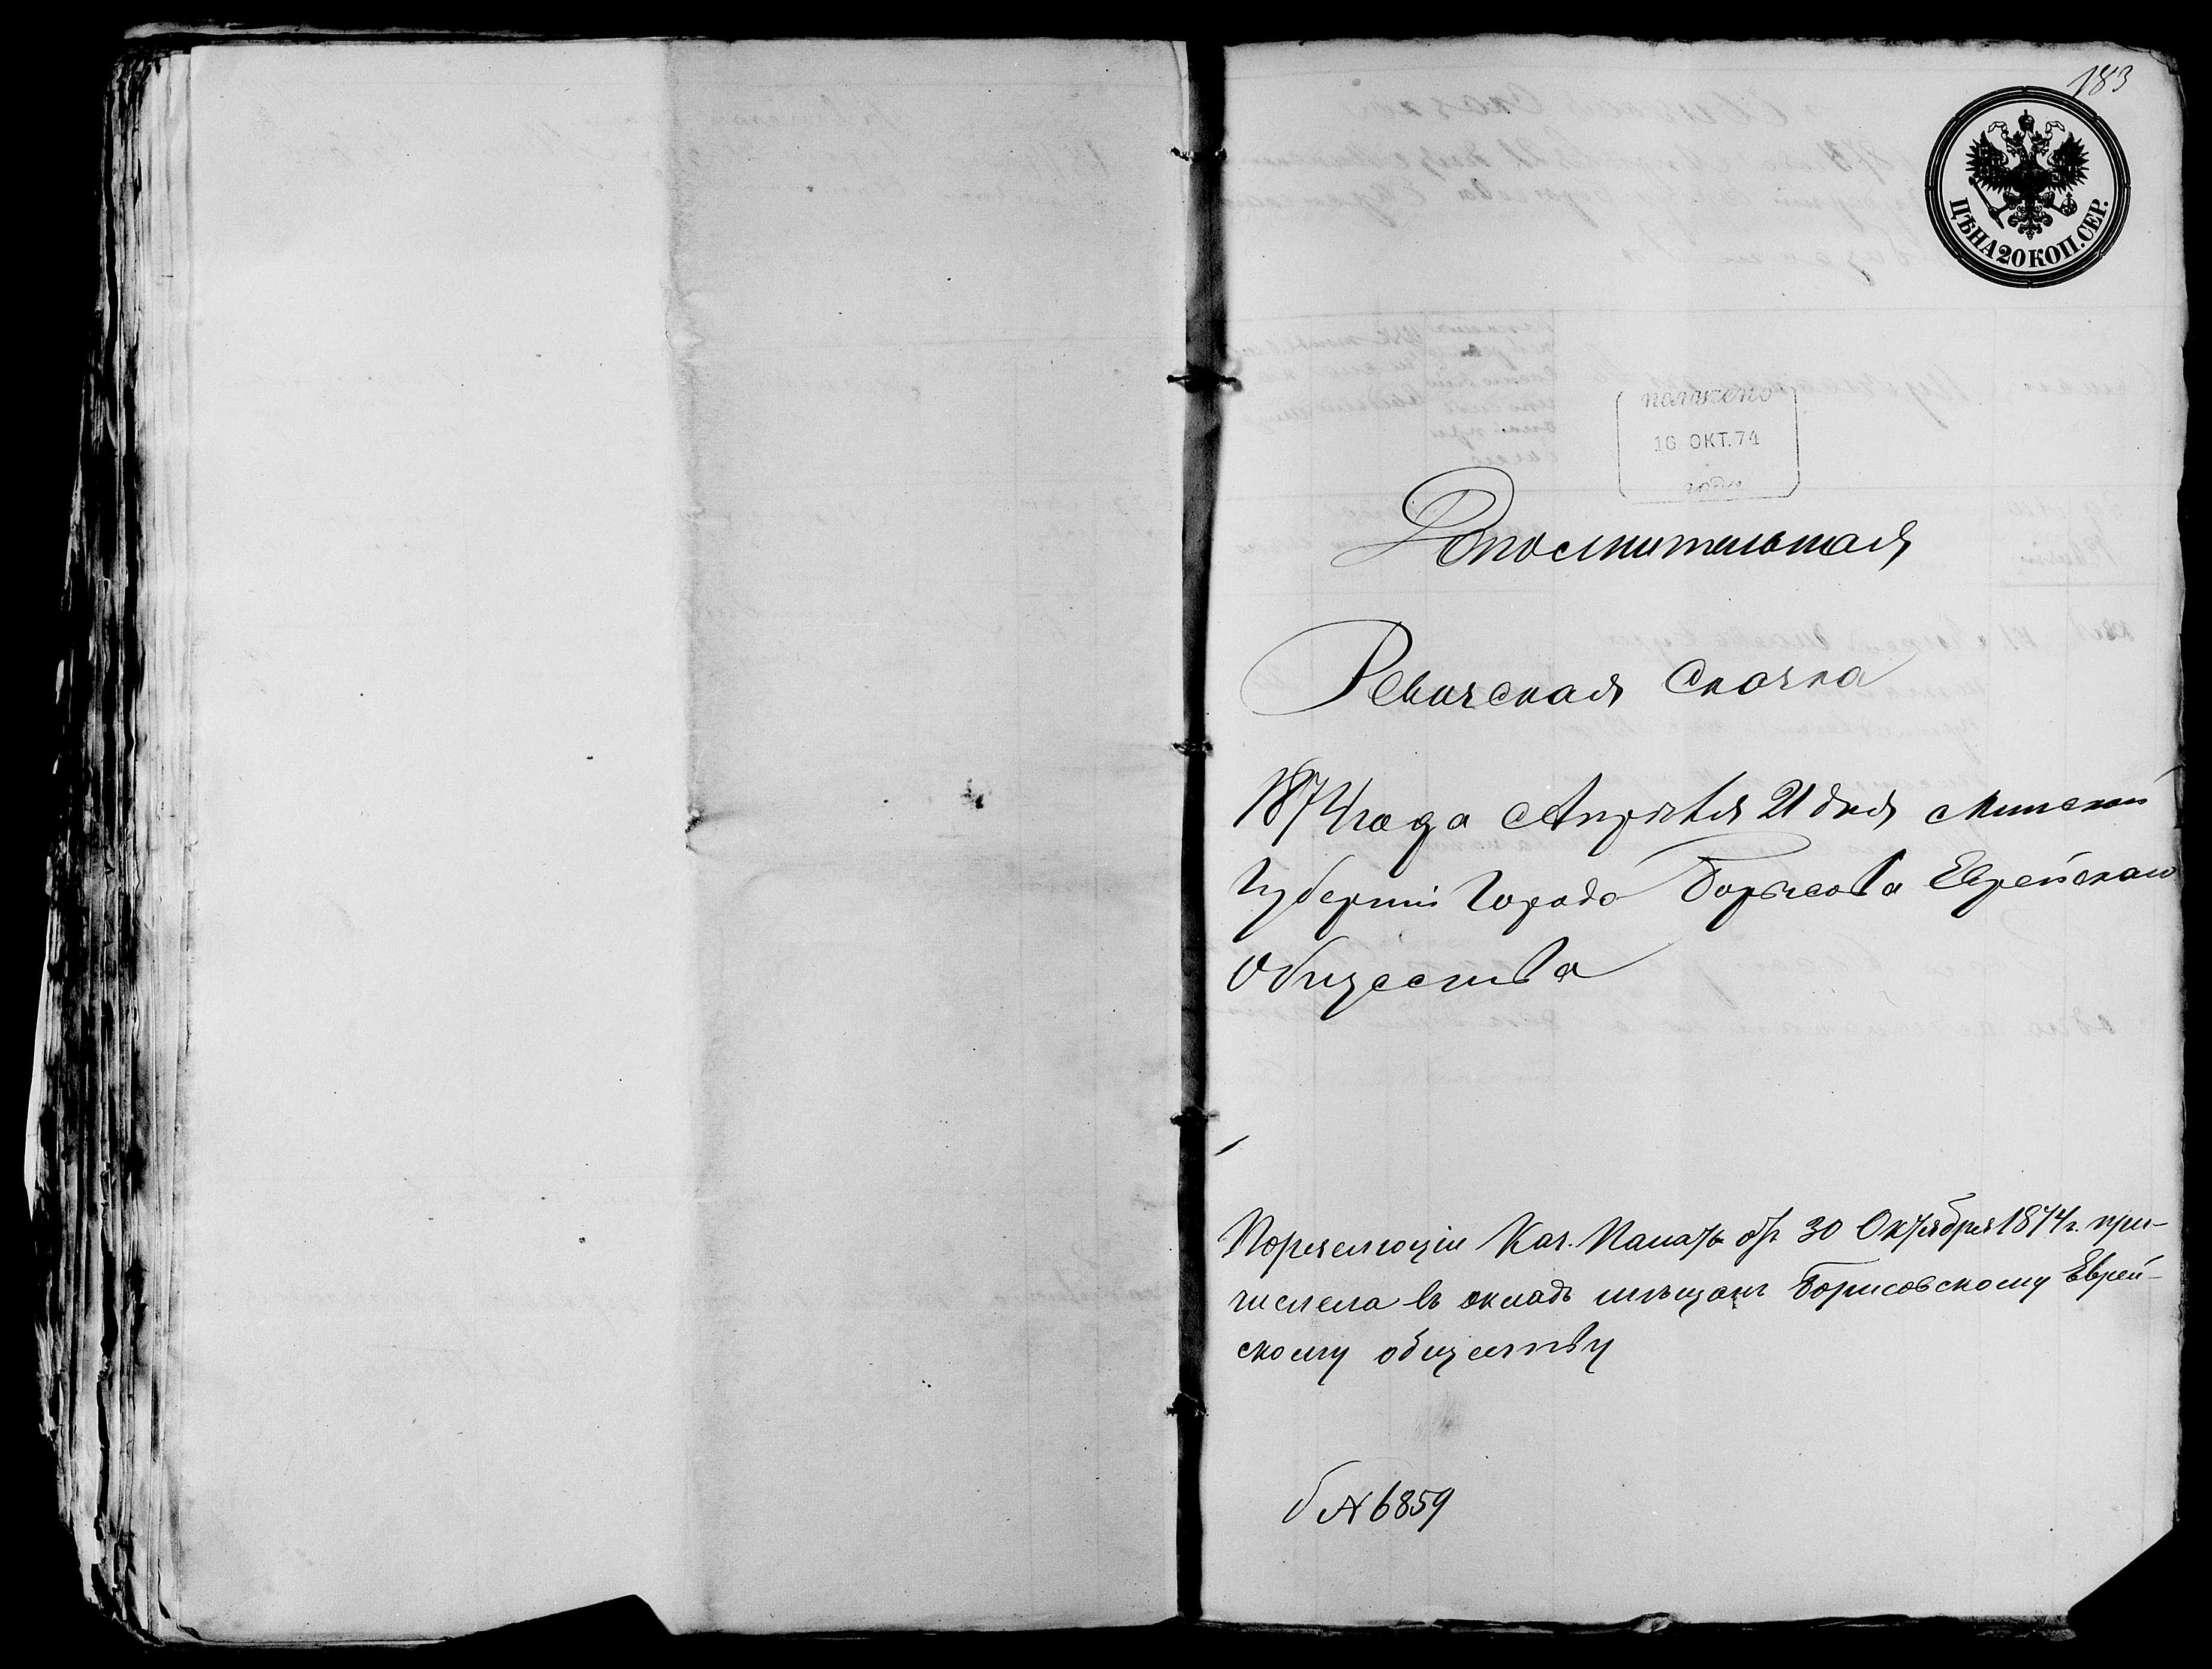 183
ЦѢНА 20 КОП. СЕР.
получено
16 ОКТ. 74
года
Дополнительная
Ревизская Сказка
1874 года Апрѣля 21 дня Минской
Губерніи Города Борисова Еврейскаго
Общества
Каз. Палаты отъ 30 Октября 1874 г. при-
числена въ окладъ мѣщанъ Борисовскому Еврей-
скому обществу
№ 6859